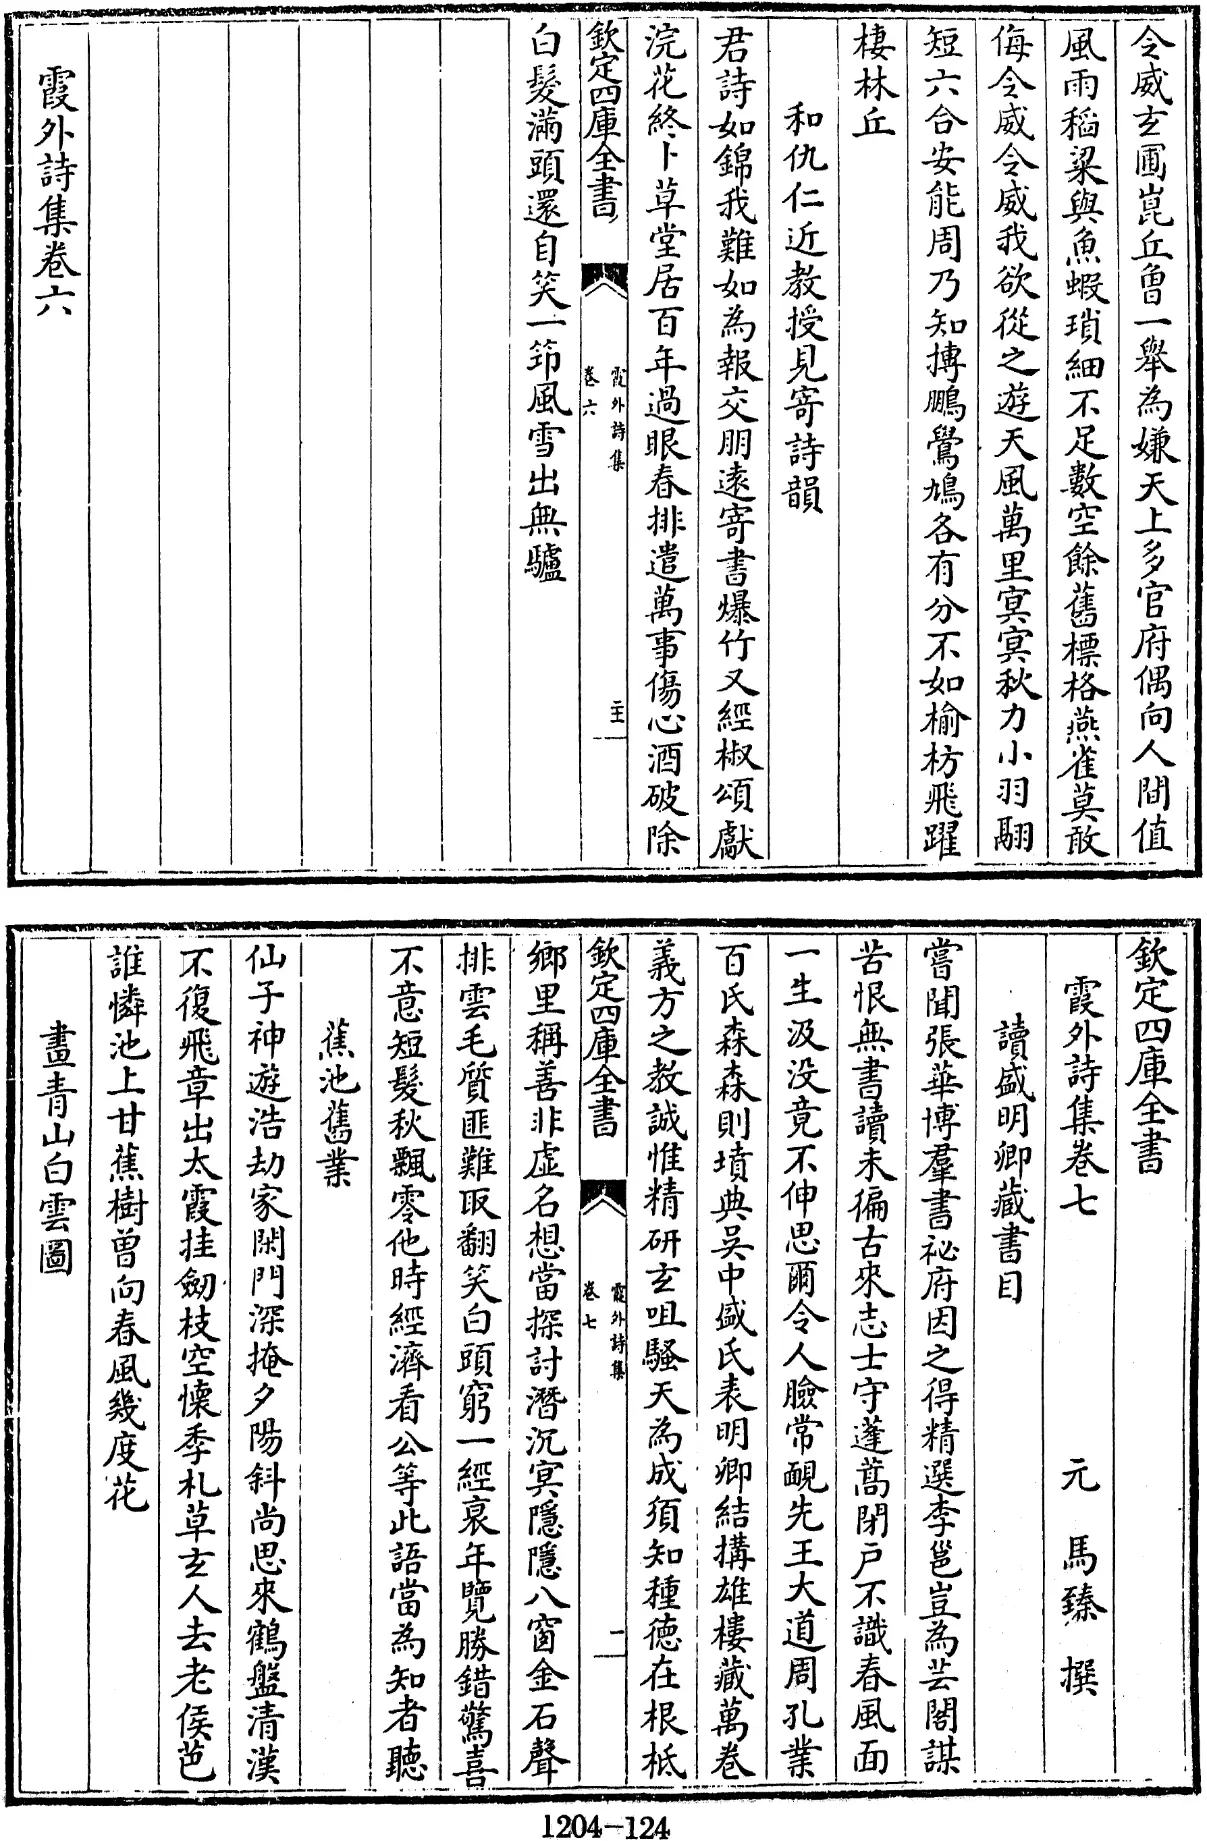 令威玄圃崑丘曾一舉為嫌天上多官府偶向人間值
風雨稻粱與魚蝦瑣細不足數空餘舊標格燕雀莫敢
侮令威令威我欲從之遊天風萬里冥冥秋力小羽翮
短六合安能周乃知摶鵬鷽鳩各有分不如榆枋飛躍
棲林丘
和仇仁近教授見寄詩韻
君詩如錦我難如為報交朋遠寄書爆竹又經椒頌獻
浣花終卜草堂居百年過眼春排遣萬事傷心酒破除
欽定四庫全書
霞外詩集
卷六
二十
白髮滿頭還自笑一笻風雪出無驢
霞外詩集卷六
欽定四庫全書
霞外詩集卷七
元 馬臻 撰
讀盛明卿藏書目
嘗聞張華博羣書祕府因之得精選李邕豈為芸閣謀
苦恨無書讀未徧古來志士守蓬蒿閉戶不識春風面
一生汲没竟不伸思爾令人臉常靦先王大道周孔業
百氏森森則墳典吳中盛氏表明卿結搆雄樓藏萬卷
義方之教誠惟精研玄咀騷天為成須知種徳在根柢
欽定四庫全書
霞外詩集
卷七
一
鄉里稱善非虛名想當探討潛沉冥隱隱八窗金石聲
排雲毛質匪難取翻笑白頭窮一經衰年覽勝錯驚喜
不意短髮秋飄零他時經濟看公等此語當為知者聽
蕉池舊業
仙子神遊浩劫家閑門深掩夕陽斜尚思來鶴盤清漢
不復飛章出太霞挂劒枝空懷季札草玄人去老侯芭
誰憐池上甘蕉樹曾向春風幾度花
畫青山白雲圖
1204-124